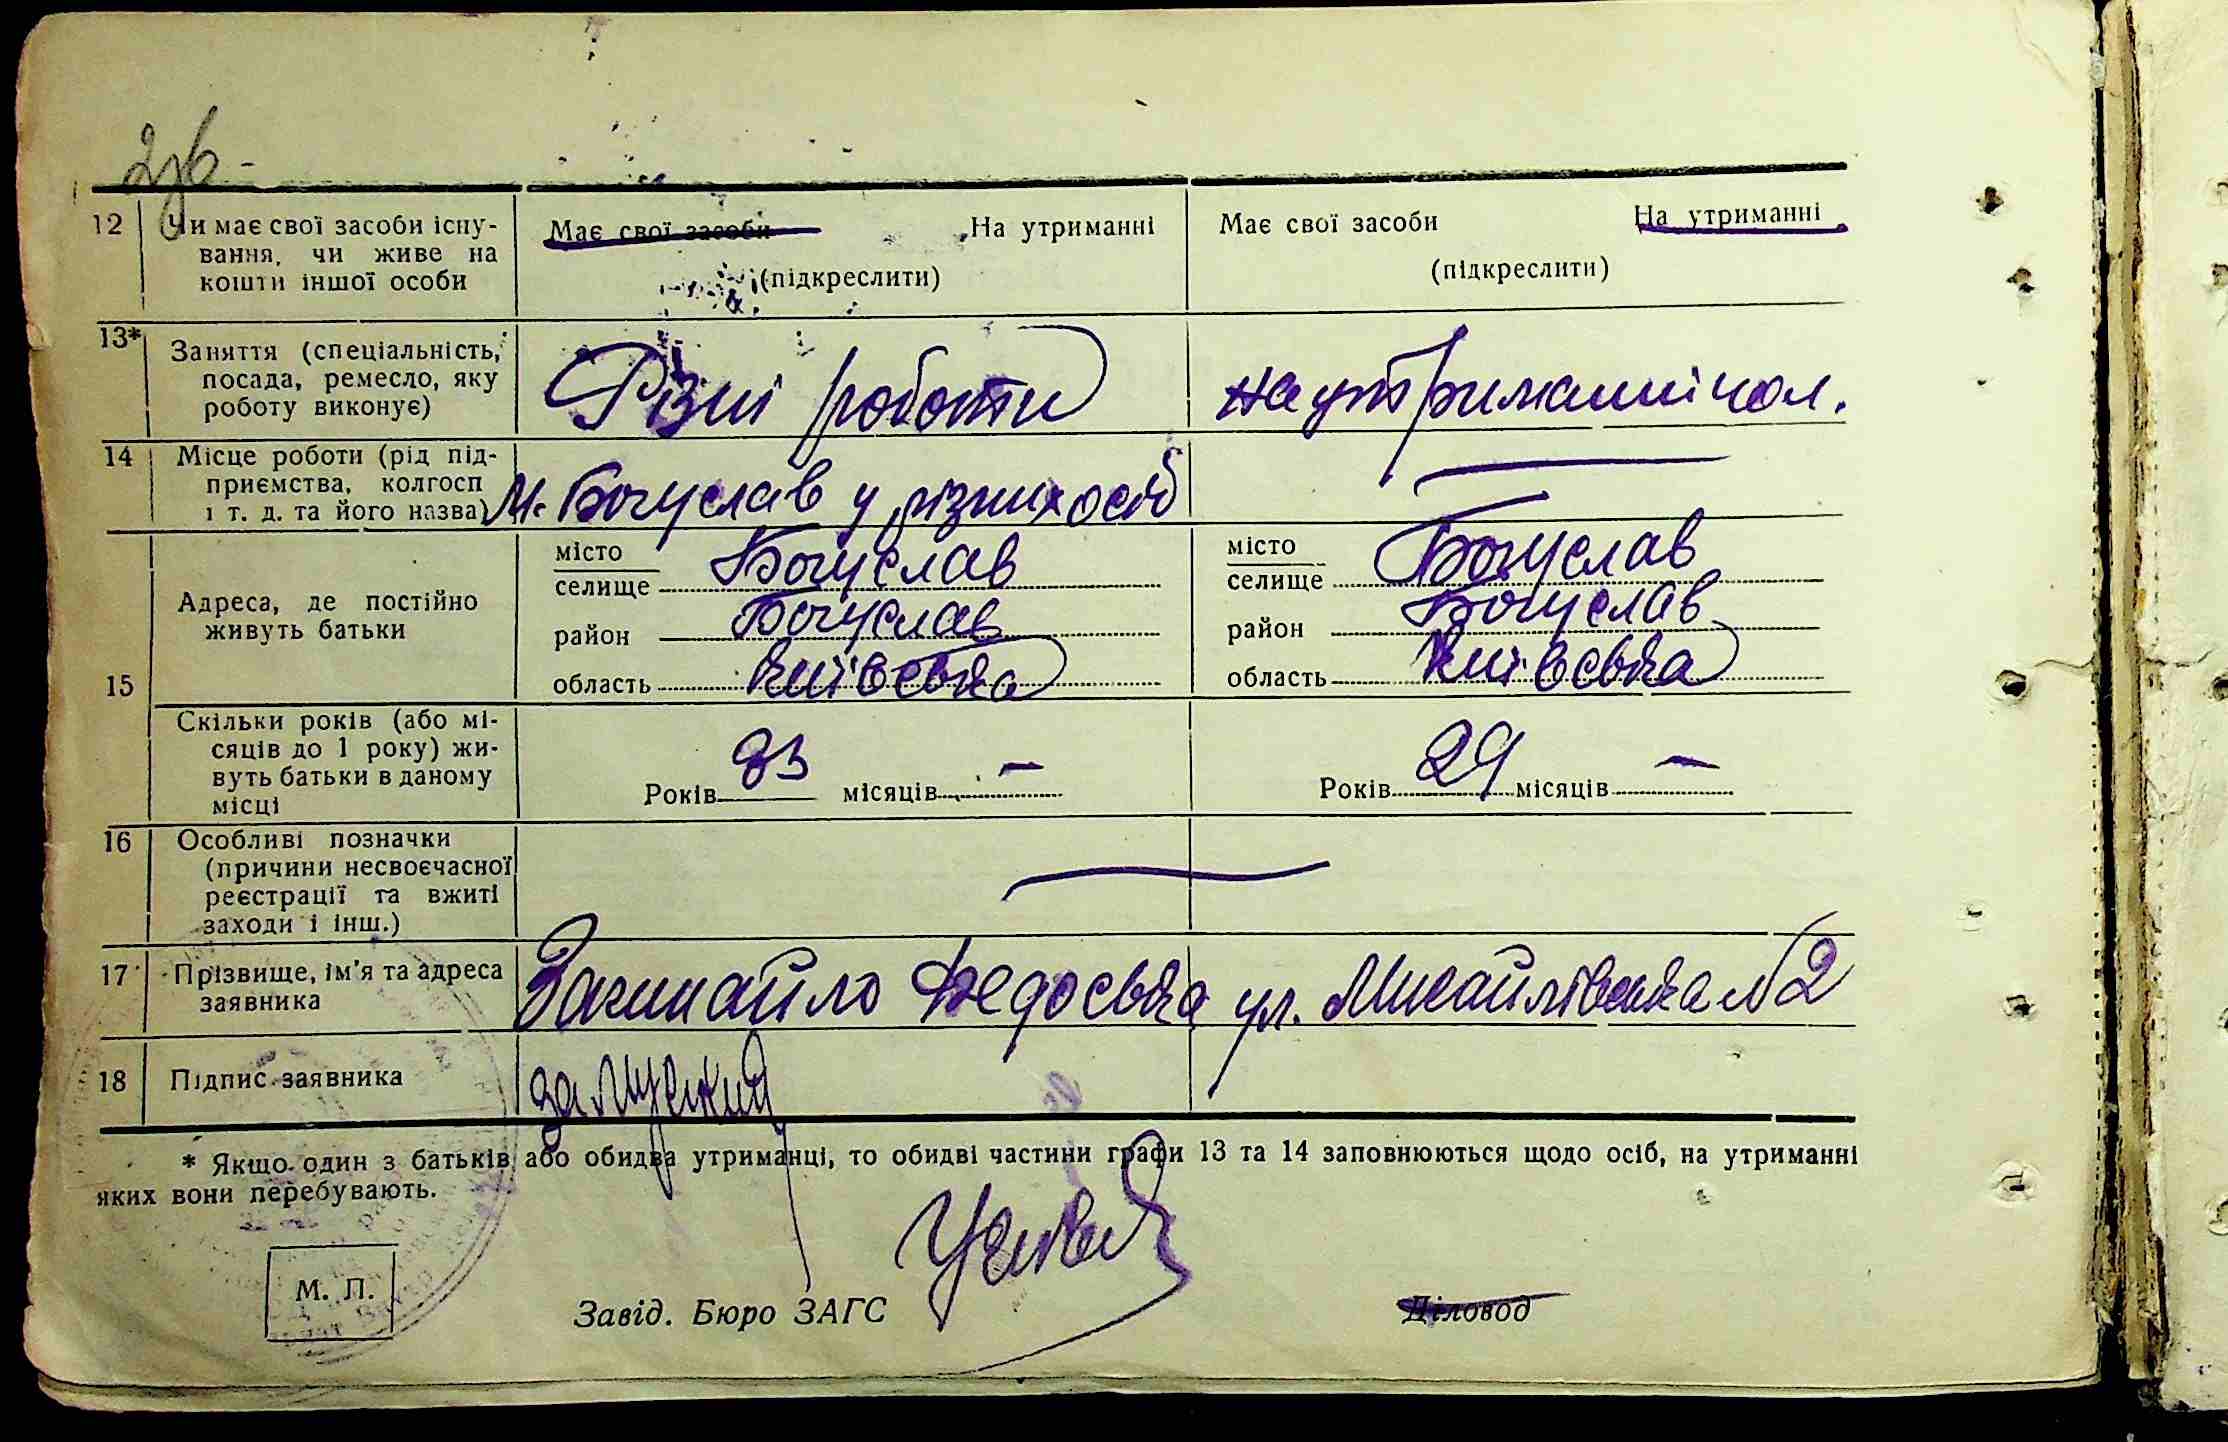 12 Чи має свої засоби існу-
вання, чи живе на
кошти іншої особи
Має свої засоби На утриманні
(підкреслити)
Має свої засоби На утриманні
(підкреслити)
13* Заняття (спеціальність,
посада, ремесло, яку
роботу виконує)
Різні роботи
на утриманні чол.
14 Місце роботи (рід під-
приємства, колгосп
і т. д. та його назва)
М. Богуслав у різних осіб
—
15 Адреса, де постійно
живуть батьки
місто
селище Богуслав
район Богуслав
область Київська
місто
селище Богуслав
район Богуслав
область Київська
Скільки років (або мі-
сяців до 1 року) жи-
вуть батьки в даному
місці
Років 33 місяців —
Років 29 місяців —
16 Особливі позначки
(причини несвоєчасної
реєстрації та вжиті
заходи і інш.)
—
17 Прізвище, ім'я та адреса
заявника
Федоська ул. Михайлівська № 2
18 Підпис заявника
* Якщо один з батьків або обидва утриманці, то обидві частини графи 13 та 14 заповнюються щодо осіб, на утриманні
яких вони перебувають.
М. П.
Завід. Бюро ЗАГС
Діловод